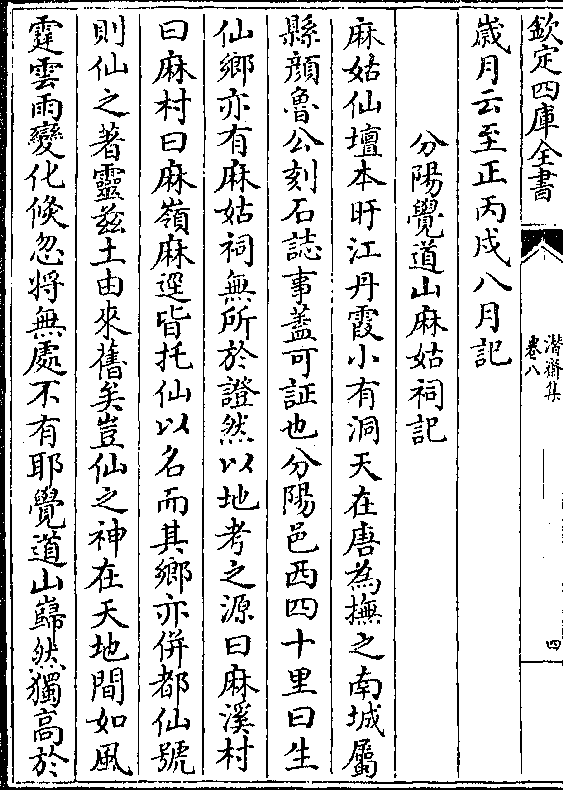 欽定四庫全書
潛齋集
卷八
四
歲月云至正丙戌八月記
分陽覺道山麻姑祠記
麻姑仙壇本旴江丹霞小有洞天在唐為撫之南城屬
縣顏魯公刻石誌事蓋可証也分陽邑西四十里曰生
仙鄉亦有麻姑祠無所於證然以地考之源曰麻溪村
曰麻村曰麻嶺麻逕皆托仙以名而其鄉亦併都仙號
則仙之著靈茲土由來舊矣豈仙之神在天地間如風
霆雲雨變化倏忽将無處不有耶覺道山巋然獨高於